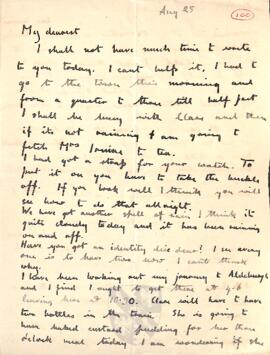 Aug 25
100
My dearest
I shall not have much time to write
to you today. I cant help it, I had to
go to the town this morning and
from a quarter to three till half past
I shall be busy with Clare and then
if its not raining I am going to
fetch Mrs to tea.
I had got a strap for your watch. To
put it on you have to take the buckle
off. If you look well I think you will
see how to do that allright.
We have got another spell of rain I think it
quite cloudy today and it has been raining
on and off.
Have you got an identity disc dear? I see every
one is to have two now I cant think
why.
I have been working out my journey to Aldeburgh
and I find I ought to get there at 4.6
leaving here at 10.30. Clare will have to have
two bottles in the train. She is going to
have baked custard pudding for her two
o'clock meal today I am wondering if she